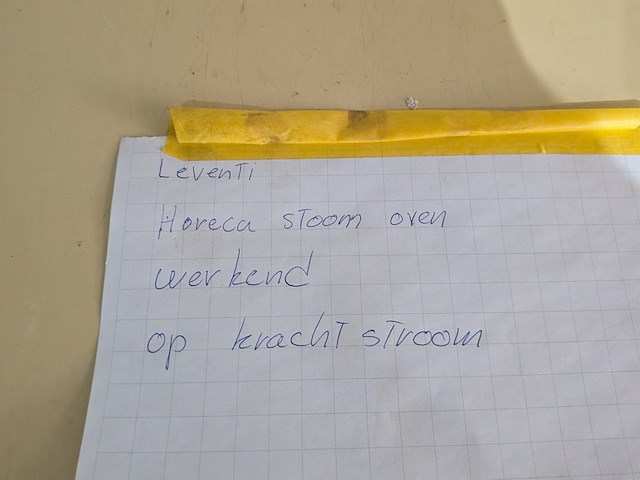 Leventi
Horeca stoom oven
werkend
op kracht stroom